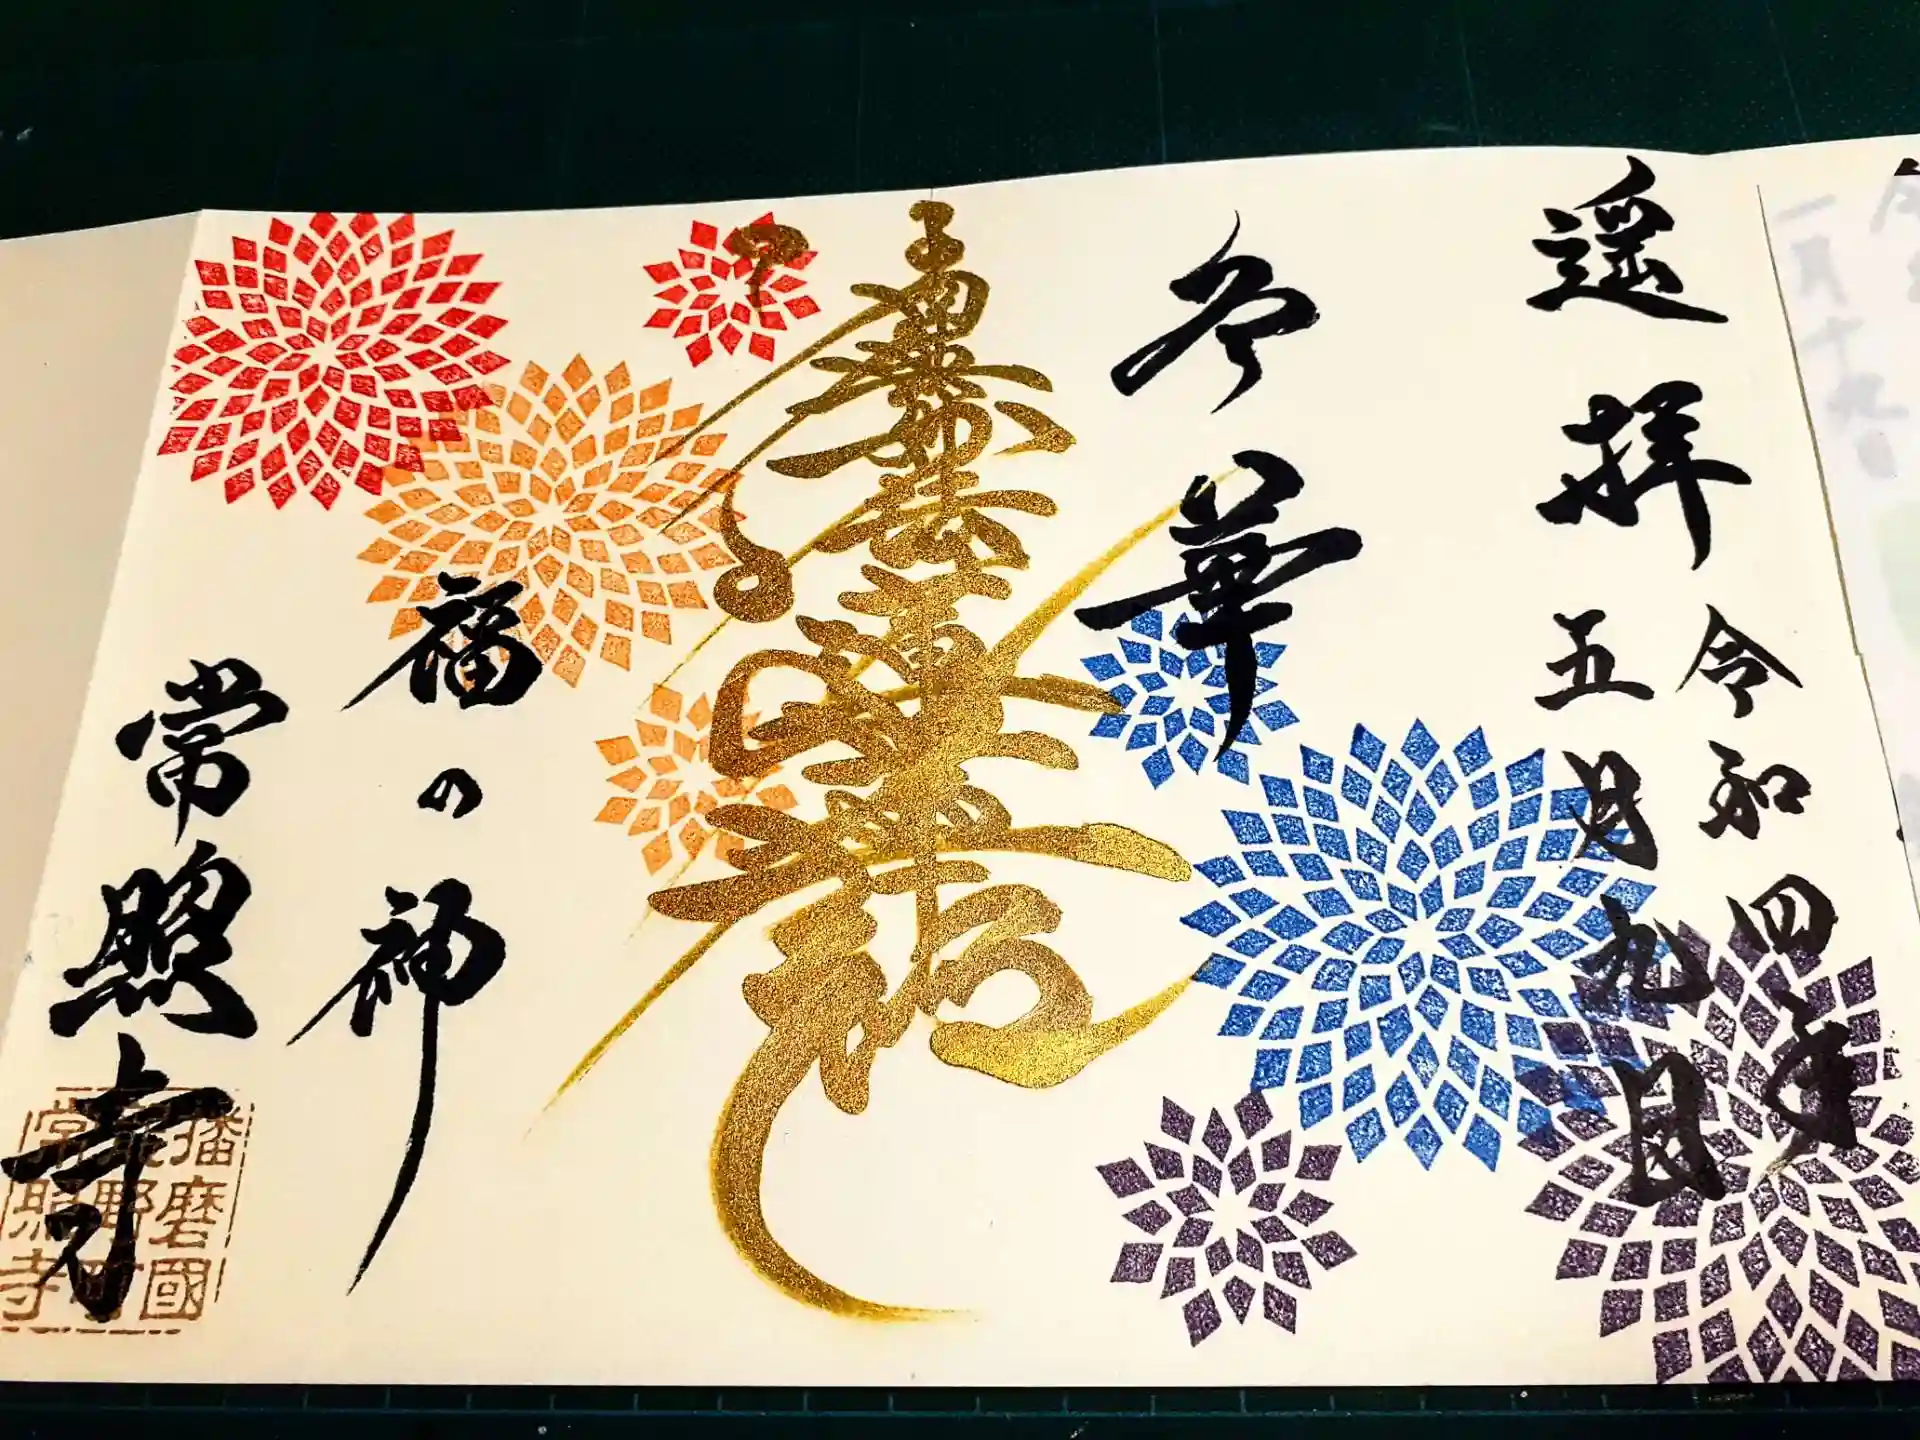 遥拝
令和四年
五月九日
華
南無妙法蓮華経
福の神
常照寺
播磨國
龍野町
常照寺